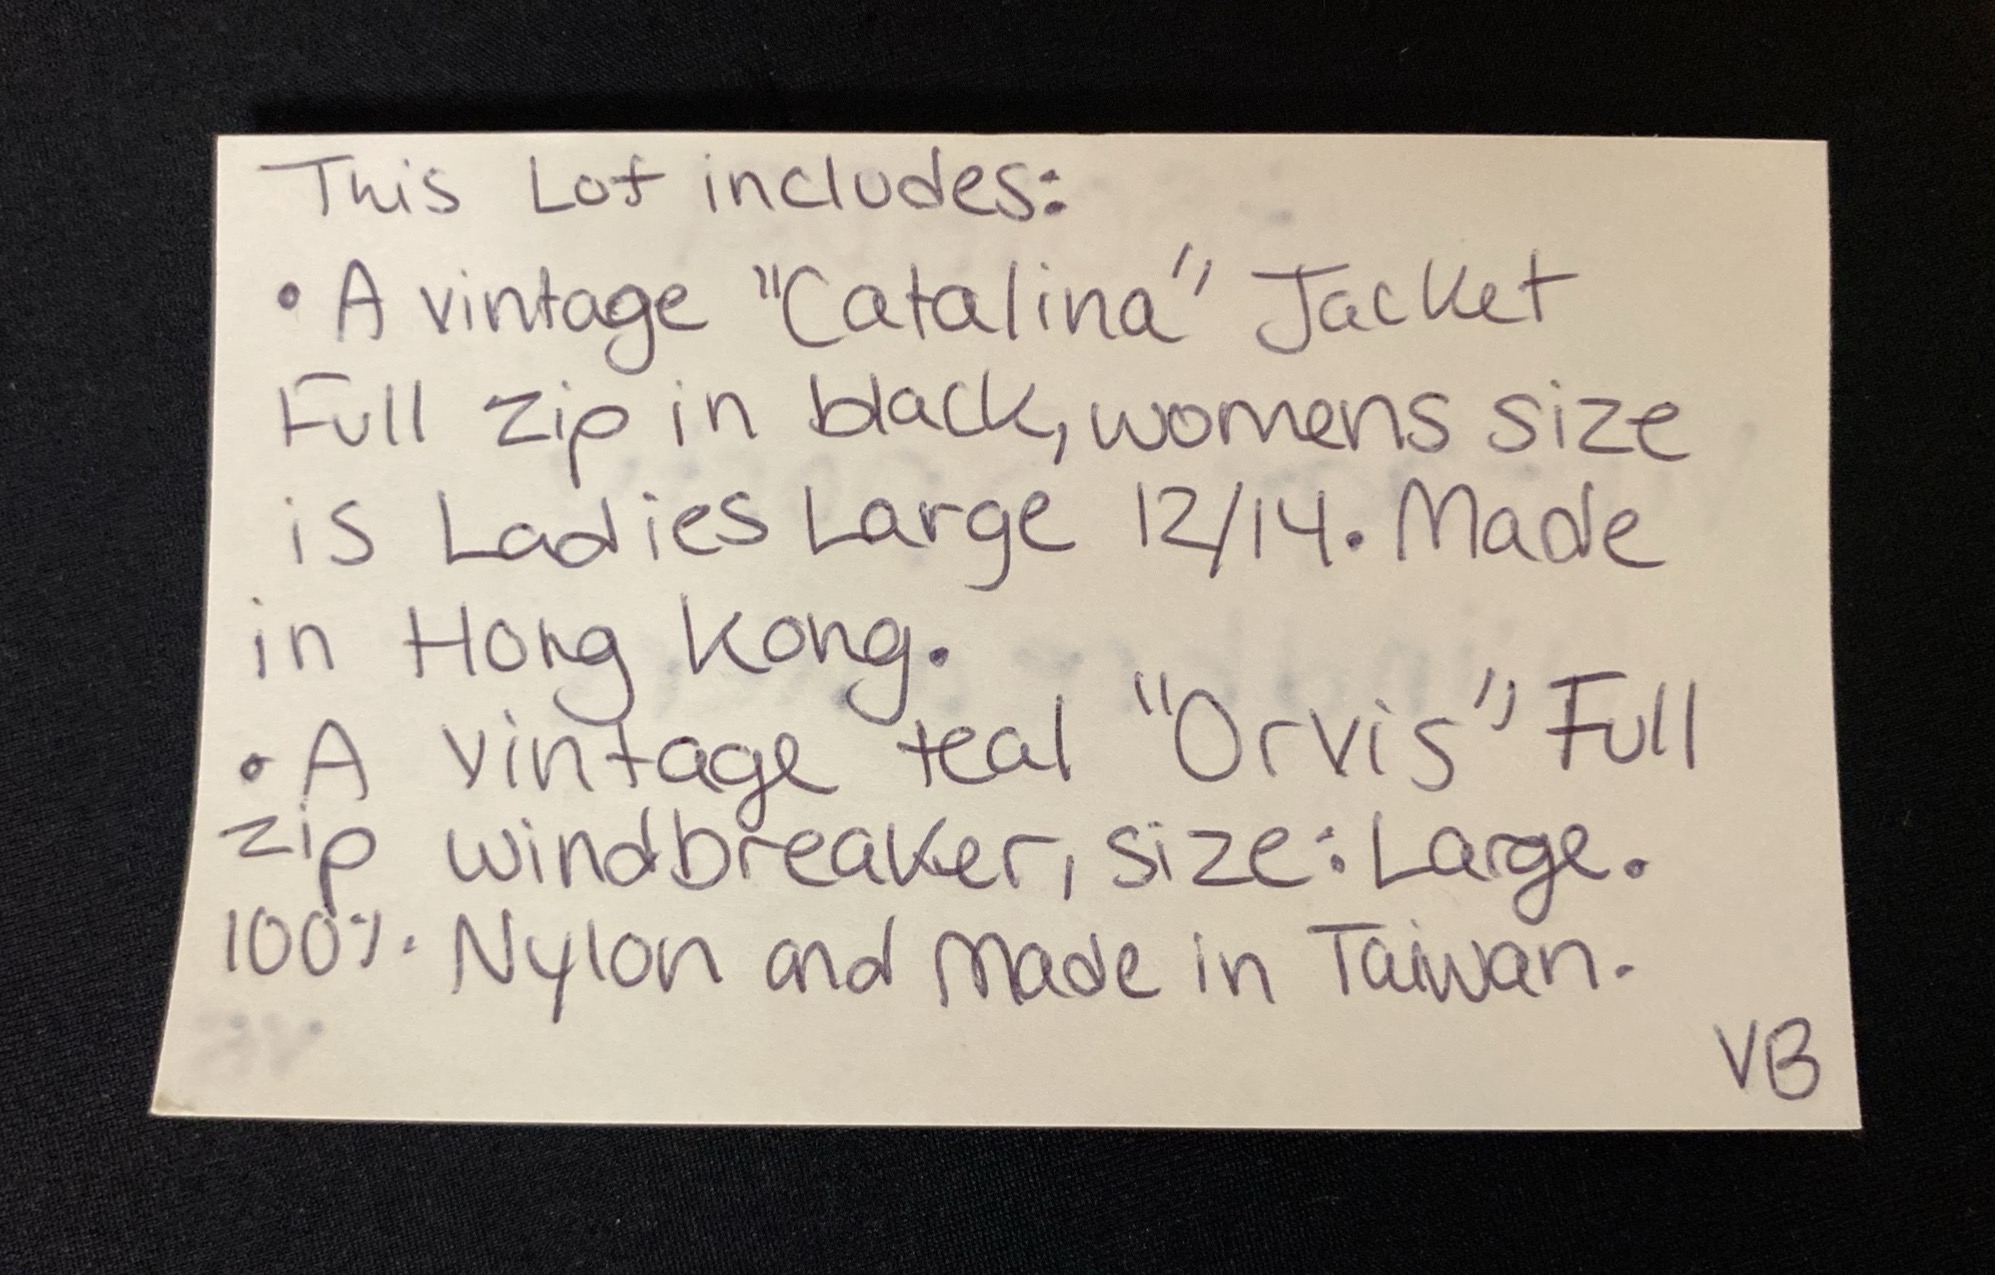 This Lot includes:
• A vintage "Catalina" Jacket
Full zip in black, womens size
is Ladies Large 12/14. Made
in Hong Kong.
• A vintage teal "Orvis" Full
zip windbreaker, size: Large.
100% Nylon and made in Taiwan.
VB